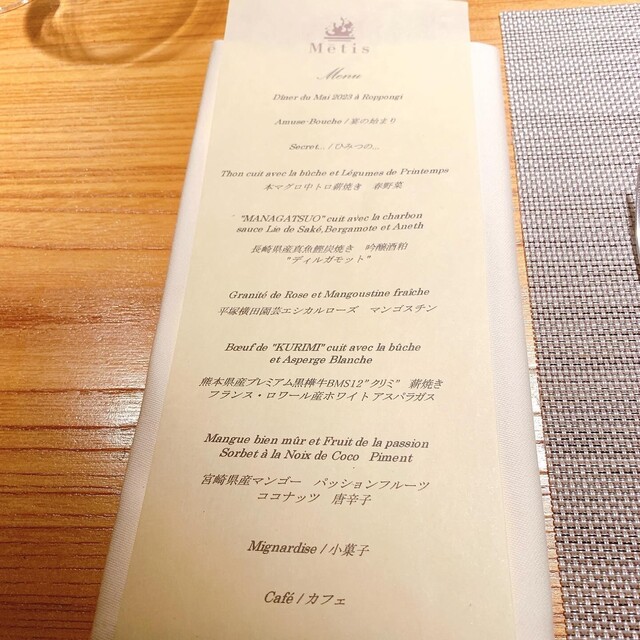 Métis
Menu
Dîner du Mai 2023 à Roppongi
Amuse-Bouche / 宴の始まり
Secret... / ひみつの...
Thon cuit avec la bûche et Légumes de Printemps
本マグロ中トロ薪焼き　春野菜
"MANAGATSUO" cuit avec la charbon
sauce Lie de Saké,Bergamote et Aneth
長崎県産真魚鰹炭焼き　吟醸酒粕
"ディルガモット"
Granité de Rose et Mangoustine fraîche
平塚横田園芸エシカルローズ　マンゴスチン
Bœuf de "KURIMI" cuit avec la bûche
et Asperge Blanche
熊本県産プレミアム黒樺牛BMS12"クリミ"　薪焼き
フランス・ロワール産ホワイトアスパラガス
Mangue bien mûr et Fruit de la passion
Sorbet à la Noix de Coco　Piment
宮崎県産マンゴー　パッションフルーツ
ココナッツ　唐辛子
Mignardise / 小菓子
Café / カフェ